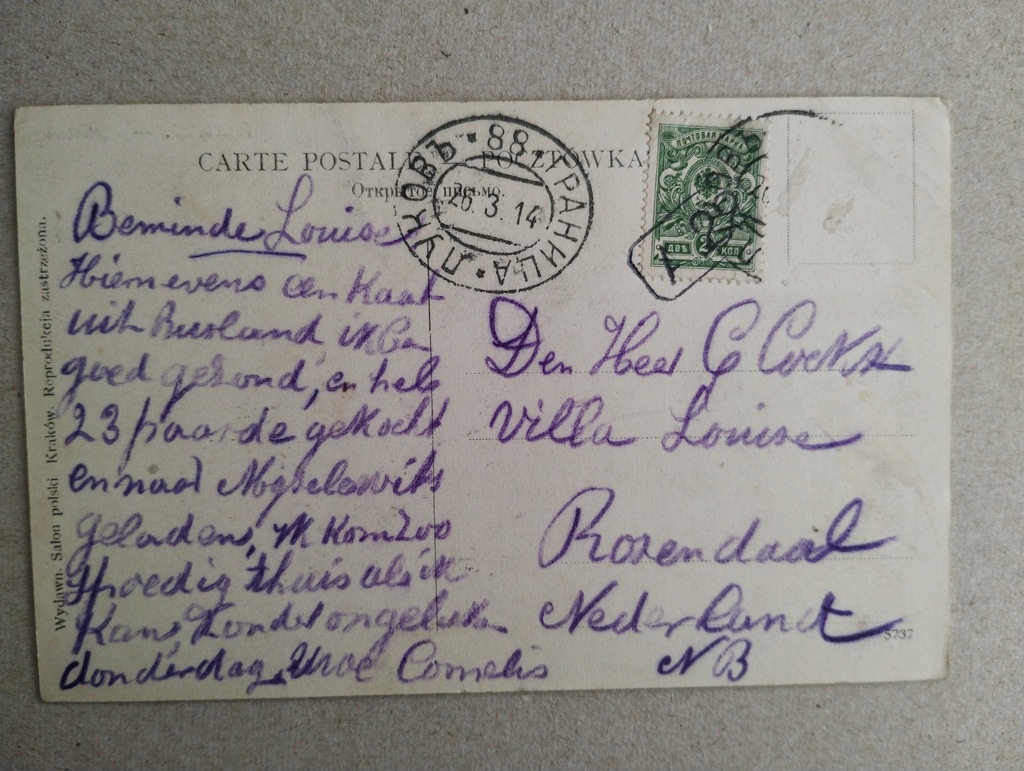 CARTE POSTALE POCZTÓWKA
Открытое письмо.
ЛУКОВЪ * 88 * ГРАНИЦА *
26.3.14
ПОЧТОВАЯ МАРКА
ДВѢ 2 КОП
Beminde Louise
Hiernevens een Kaat
uit Rusland, ik ben
goed gezond, en heb
23 paarde gekocht
en naar
geladen, ik kom zoo
spoedig thuis als ik
Kan, Zonder ongelukken
donderdag, Uwe Cornelis
Den Heer C Cockx
Villa Louise
Rosendaal
Nederland
NB
5737
Wydawn. Salon polski Kraków. Reprodukcja zastrzeżona.